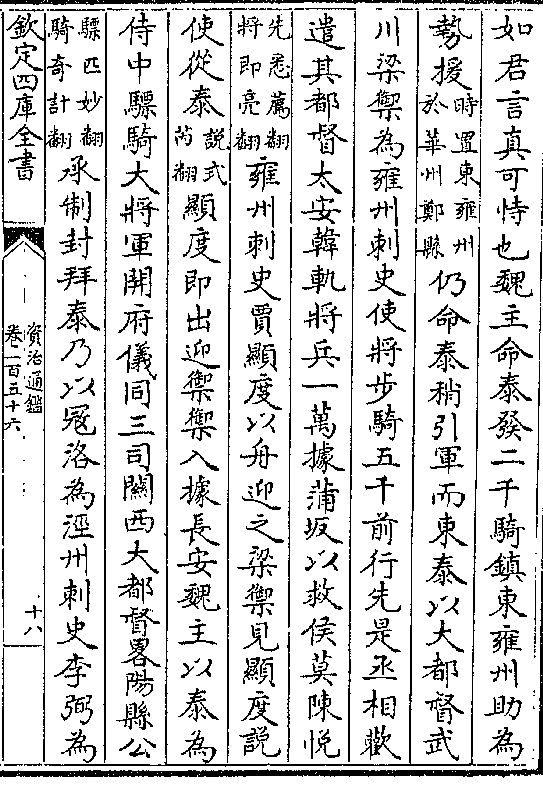 如君言真可恃也魏主命泰發二千騎鎮東雍州助為
勢援時置東雍州於華州鄭縣仍命泰稍引軍而東泰以大都督武
川梁禦為雍州刺史使將步騎五千前行先是丞相歡
遣其都督太安韓軌將兵一萬據蒲坂以救侯莫陳悅
先悉薦翻將即亮翻雍州刺史賈顯度以舟迎之梁禦見顯度說
使從泰說式芮翻顯度即出迎禦禦入據長安魏主以泰為
侍中驃騎大將軍開府儀同三司關西大都督畧陽縣公
驃匹妙翻騎奇計翻承制封拜泰乃以冦洛為涇州刺史李弼為
欽定四庫全書
資治通鑑
卷一百五十六
十八